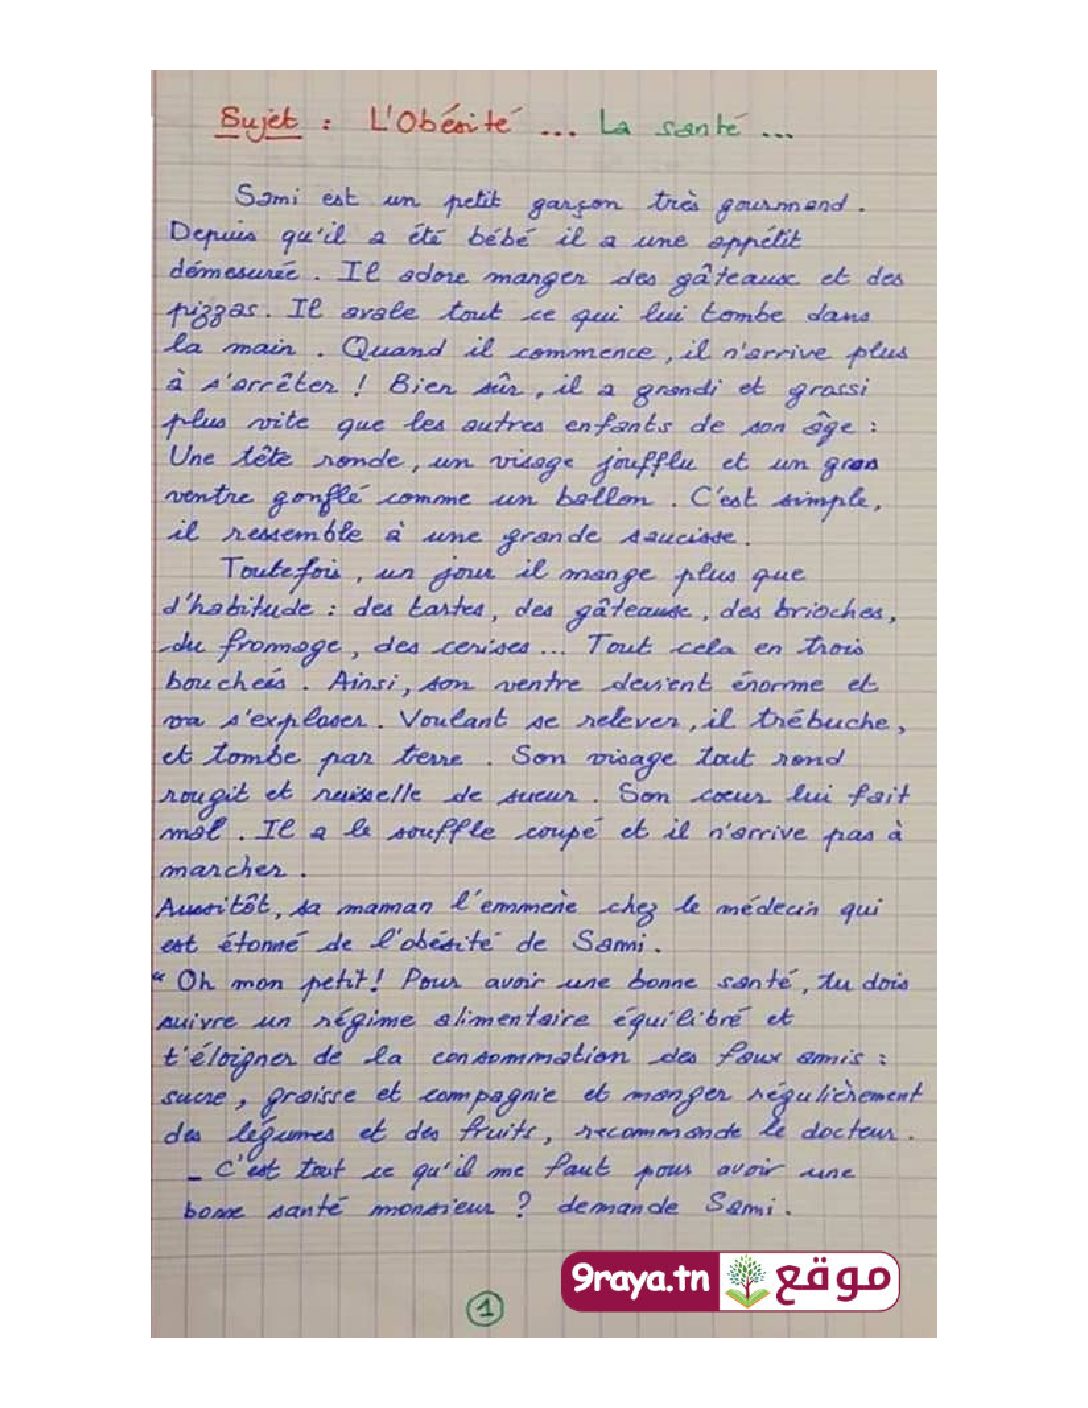 Sujet : L'Obésité ... La santé ...
Sami est un petit garçon très gourmand.
Depuis qu'il a été bébé il a une appétit
démesurée. Il adore manger des gâteaux et des
pizzas. Il avale tout ce qui lui tombe dans
la main. Quand il commence, il n'arrive plus
à s'arrêter ! Bien sûr, il a grandi et grassi
plus vite que les autres enfants de son âge :
Une tête ronde, un visage joufflu et un gros
ventre gonflé comme un ballon. C'est simple,
il ressemble à une grande saucisse.
Toutefois, un jour il mange plus que
d'habitude : des tartes, des gâteaux, des brioches,
du fromage, des cerises... Tout cela en trois
bouchées. Ainsi, son ventre devient énorme et
va s'exploser. Voulant se relever, il trébuche,
et tombe par terre. Son visage tout rond
rougit et ruisselle de sueur. Son cœur lui fait
mal. Il a le souffle coupé et il n'arrive pas à
marcher.
Aussitôt, sa maman l'emmène chez le médecin qui
est étonné de l'obésité de Sami.
" Oh mon petit! Pour avoir une bonne santé, tu dois
suivre un régime alimentaire équilibré et
t'éloigner de la consommation des faux amis :
sucre, graisse et compagnie et manger régulièrement
des légumes et des fruits, recommande le docteur.
_ C'est tout ce qu'il me faut pour avoir une
bonne santé monsieur ? demande Sami.
9raya.tn موقع
1